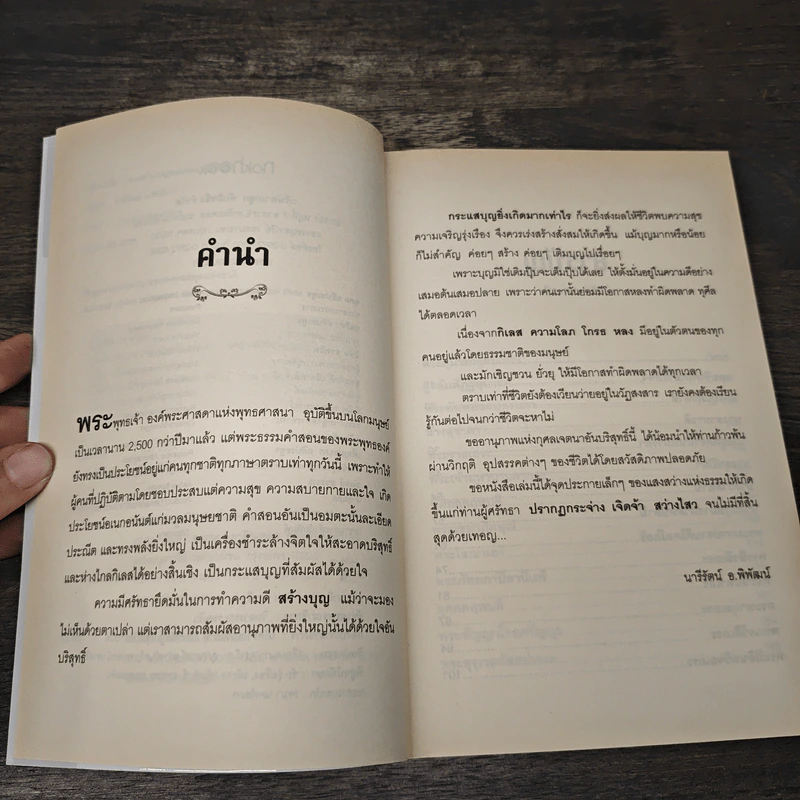 คำนำ
พระพุทธเจ้า องค์พระศาสดาแห่งพุทธศาสนา อุบัติขึ้นบนโลกมนุษย์
เป็นเวลานาน 2,500 กว่าปีมาแล้ว แต่พระธรรมคำสอนของพระพุทธองค์
ยังทรงเป็นประโยชน์อยู่แก่คนทุกชาติทุกภาษาตราบเท่าทุกวันนี้ เพราะทำให้
ผู้คนที่ปฏิบัติตามโดยชอบประสบแต่ความสุข ความสบายกายและใจ เกิด
ประโยชน์อเนกอนันต์แก่มวลมนุษยชาติ คำสอนอันเป็นอมตะนั้นละเอียด
ประณีต และทรงพลังยิ่งใหญ่ เป็นเครื่องชำระล้างจิตใจให้สะอาดบริสุทธิ์
และห่างไกลกิเลสได้อย่างสิ้นเชิง เป็นกระแสบุญที่สัมผัสได้ด้วยใจ
ความมีศรัทธายึดมั่นในการทำความดี สร้างบุญ แม้ว่าจะมอง
ไม่เห็นด้วยตาเปล่า แต่เราสามารถสัมผัสอานุภาพที่ยิ่งใหญ่นั้นได้ด้วยใจอัน
บริสุทธิ์
กระแสบุญยิ่งเกิดมากเท่าไร ก็จะยิ่งส่งผลให้ชีวิตพบความสุข
ความเจริญรุ่งเรือง จึงควรเร่งสร้างสั่งสมให้เกิดขึ้น แม้บุญมากหรือน้อย
ก็ไม่สำคัญ ค่อยๆ สร้าง ค่อยๆ เติมบุญไปเรื่อยๆ
เพราะบุญมิใช่เติมปุ๊บจะเต็มปุ๊บได้เลย ให้ตั้งมั่นอยู่ในความดีอย่าง
เสมอต้นเสมอปลาย เพราะว่าคนเรานั้นย่อมมีโอกาสหลงทำผิดพลาด ทุศีล
ได้ตลอดเวลา
เนื่องจากกิเลส ความโลภ โกรธ หลง มีอยู่ในตัวตนของทุก
คนอยู่แล้วโดยธรรมชาติของมนุษย์
และมักเชิญชวน ยั่วยุ ให้มีโอกาสทำผิดพลาดได้ทุกเวลา
ตราบเท่าที่ชีวิตยังต้องเวียนว่ายอยู่ในวัฏสงสาร เรายังคงต้องเรียน
รู้กันต่อไปจนกว่าชีวิตจะหาไม่
ขออานุภาพแห่งกุศลเจตนาอันบริสุทธิ์นี้ ได้น้อมนำให้ท่านก้าวพ้น
ผ่านวิกฤติ อุปสรรคต่างๆ ของชีวิตได้โดยสวัสดิภาพปลอดภัย
ขอหนังสือเล่มนี้ได้จุดประกายเล็กๆ ของแสงสว่างแห่งธรรมให้เกิด
ขึ้นแก่ท่านผู้ศรัทธา ปรากฏกระจ่าง เจิดจ้า สว่างไสว จนไม่มีที่สิ้น
สุดด้วยเทอญ...
นารีรัตน์ อ.พิพัฒน์